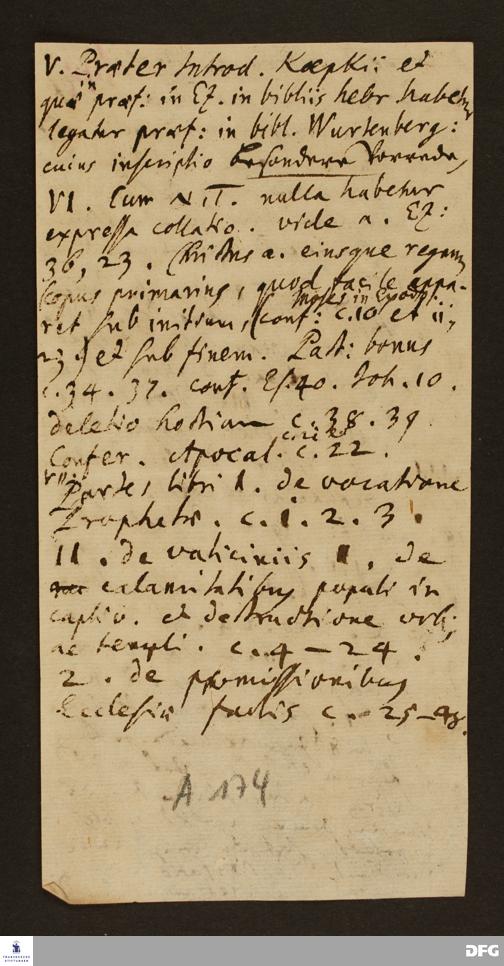 V. Præter Introd. Kœpkii et
quæ in præf: in Ez. in bibliis hebr. habetur
legatur præf: in bibl. Wurtenberg:
cuius inscriptio besondere Vorrede,
VI. Cum N. T. nulla habetur
expressa collatio. vide a. Ez:
36, 23. Christus a. eiusque regnum
scopus primarius, quod facile appa-
ret sub initium, (conf: c. 10 et 11,
23.) et sub finem. Past: bonus
c. 34. 37. conf. Es. 40. Joh. 10.
deletio hostium c. 38. 39
Confer. Apocal. c. 22.
VII Partes libri I. de vocatione
Prophetæ. c. 1. 2. 3.
II. de vaticiniis 1. de
calamitatibus populi in
captiv. et destructione urb:
ac templi. c. 4 — 24.
2. de promissionibus
Ecclesiæ factis c. 25-48.
A 174
FRANCKESCHE
STIFTUNGEN
DFG